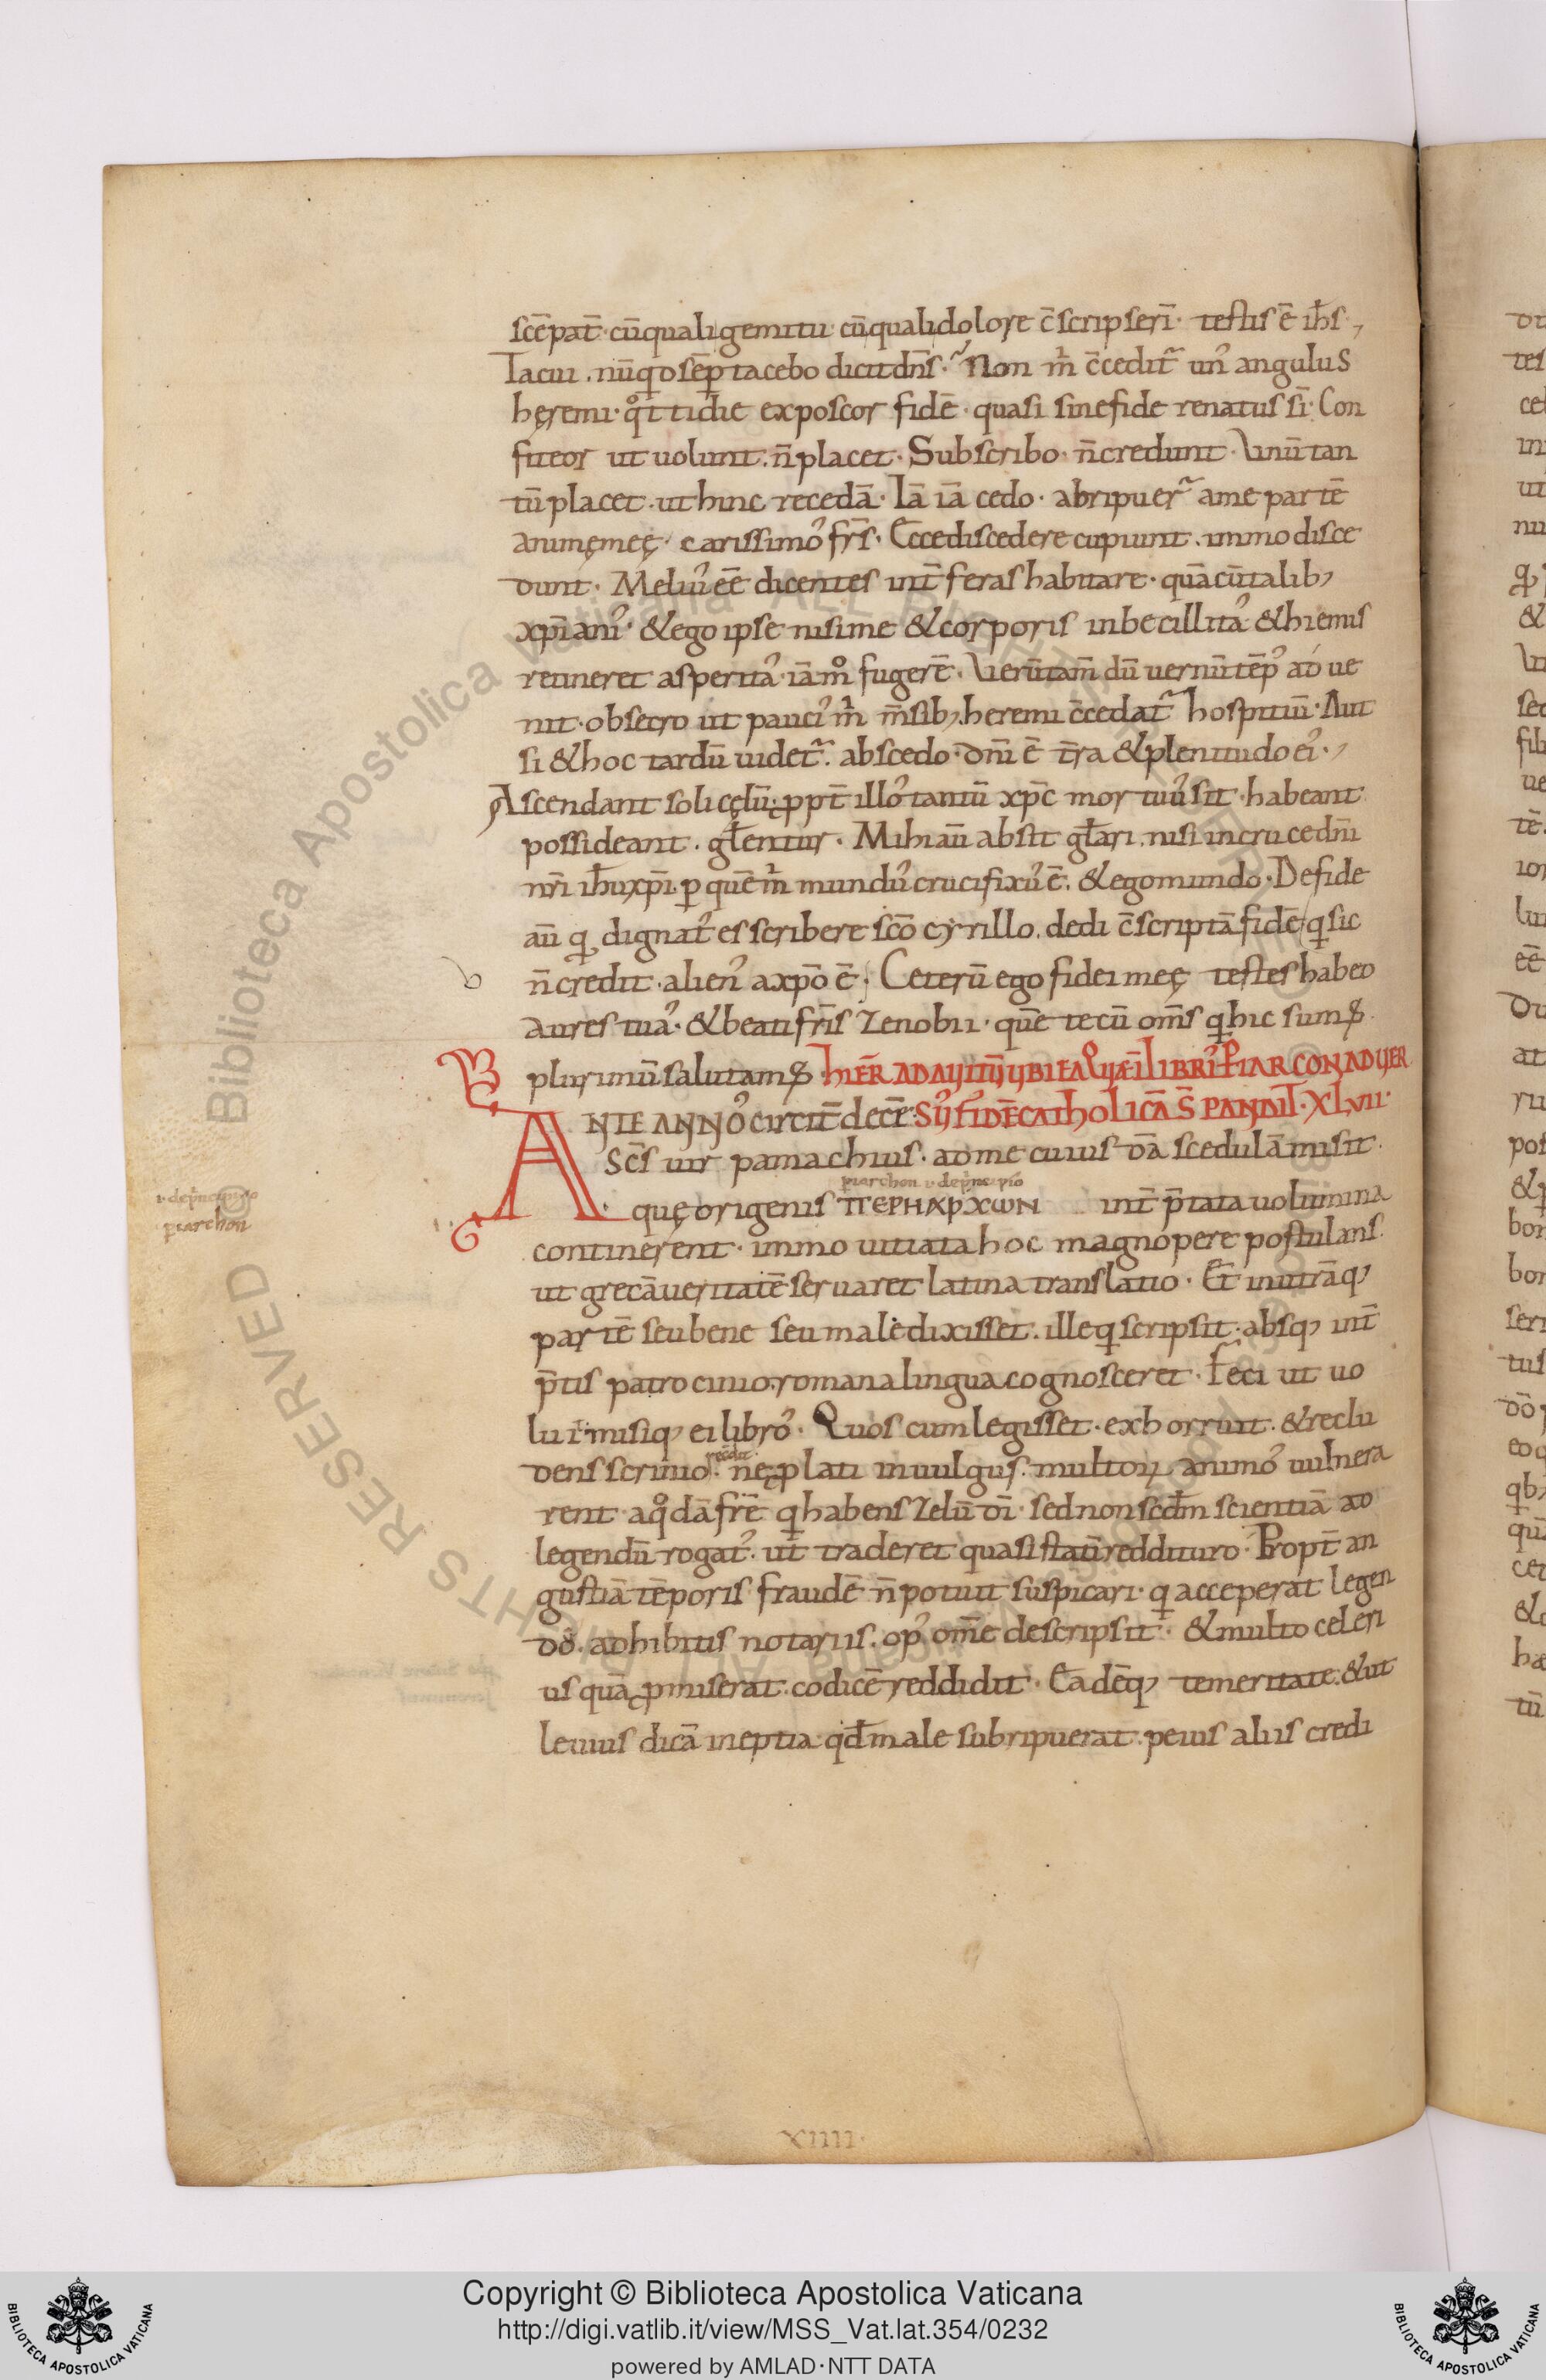 sc̄e pat̄· cū quali gemitu· cū quali dolore c̄scripseri̅· testis ē ih̄s·,
Tacui· nūqd sēp tacebo dicit dn̄s· Non m̄ c̄cedit᷑ un᾽ angulus
hęremi· qͦttidie exposcor fidē· quasi sine fide renatus sī· Con
fiteor ut uolunt· n̄ placet· Subscribo· n̄ credunt· Vnū tan
tū placet· ut hinc recedā· Iā iā cedo· abripuer᷑ a me partē
animę meę· carissimo᾽ fr̄s· Ecce discedere cupiunt· immo disce
dunt· Meliu᾽ eē dicentes int̄ feras habitare· quā cū talib;
xp̄iani᾽· & ego ipse nisi me & corporis inbecillita᾽ & hiemis
retineret asperita᾽· iā mͦ fugerē· Verūtam̄ dū uernū tēp᾽ adue
nit· obsecro ut pauci᾽ m̄ m̄sib; heremi c̄cedat᷑ hospitiū· Aut
si & hoc tardū uidet᷑· abscedo· dn̄i ē t̄ra & plenitudo ei᾽·,
Ascendant soli cęlū· ppt̄ illo᾽ tantū xp̄c mortuu᾽ sit· habeant
possideant· gl̄entur· Mihi aū absit gl̄ari· nisi in cruce dn̄i
nr̄i ih̄u xp̄i· p quē m̄ mundu᾽ crucifixu᾽ ē· & ego mundo· De fide
aū q dignat᾽ es scribere sc̄o cyrillo· dedi c̄scriptā fidē· q sic
n̄ credit· alien᾽ a xp̄o ē· Ceterū ego fidei meę testes habeo
aures tua᾽· & beati fr̄is Zenobii· quē tecū om̄s q hic sum᾽
plurimū salutam᾽· HIER̄ AD
ANTE ANNO᾽ circit̄ decē· FIDĒ CATHOLICĀ XLVII·
Sc̄s uir pamachius· ad me cuius dā scedulā misit·
piarchon ł de pͥncipio
quę origenis ΠΕΡΗΑΡΧωΝ int̄p̄tata uolumina
ł de pͥncipio
piarchon
continerent· immo uitiata hoc magnopere postulans·
ut grecā ueritatē seruaret latina translatio· Et in utrāq;
partē seu bene seu male dixisset· ille q scripsit· absq; int̄
p̄tis patrocinio· romana lingua cognosceret· Feci ut uo
luit· misiq; ei libro᾽· Quos cum legisset· exhorruit· & reclu
dens scrinio· ne plati in uulgus· multoꝝ animo᾽ uulnera
rent· a qͦdā fr̄e q habens Zelū dī· sed non sed̄m scientiā ad
legendū rogat᾽· ut traderet quasi statī redditur᾽· Propt̄ an
gustiā tēporis fraudē n̄ potuit suspicari· q acceperat legen
do᾽· adhibitis notariis· op᾽ om̄e descripsit· & multo celeri
us quā pmiserat· codicē reddidit· Eadēq; temeritate· & ut
leuius dicā ineptia· qd̄ male subripuerat· peius aliis credi
XIIII·
Copyright © Biblioteca Apostolica Vaticana
http://digi.vatlib.it/view/MSS_Vat.lat.354/0232
powered by AMLAD·NTT DATA
BIBLIOTECA APOSTOLICA VATICANA
BIBLIOTECA APOSTOLICA VATICANA